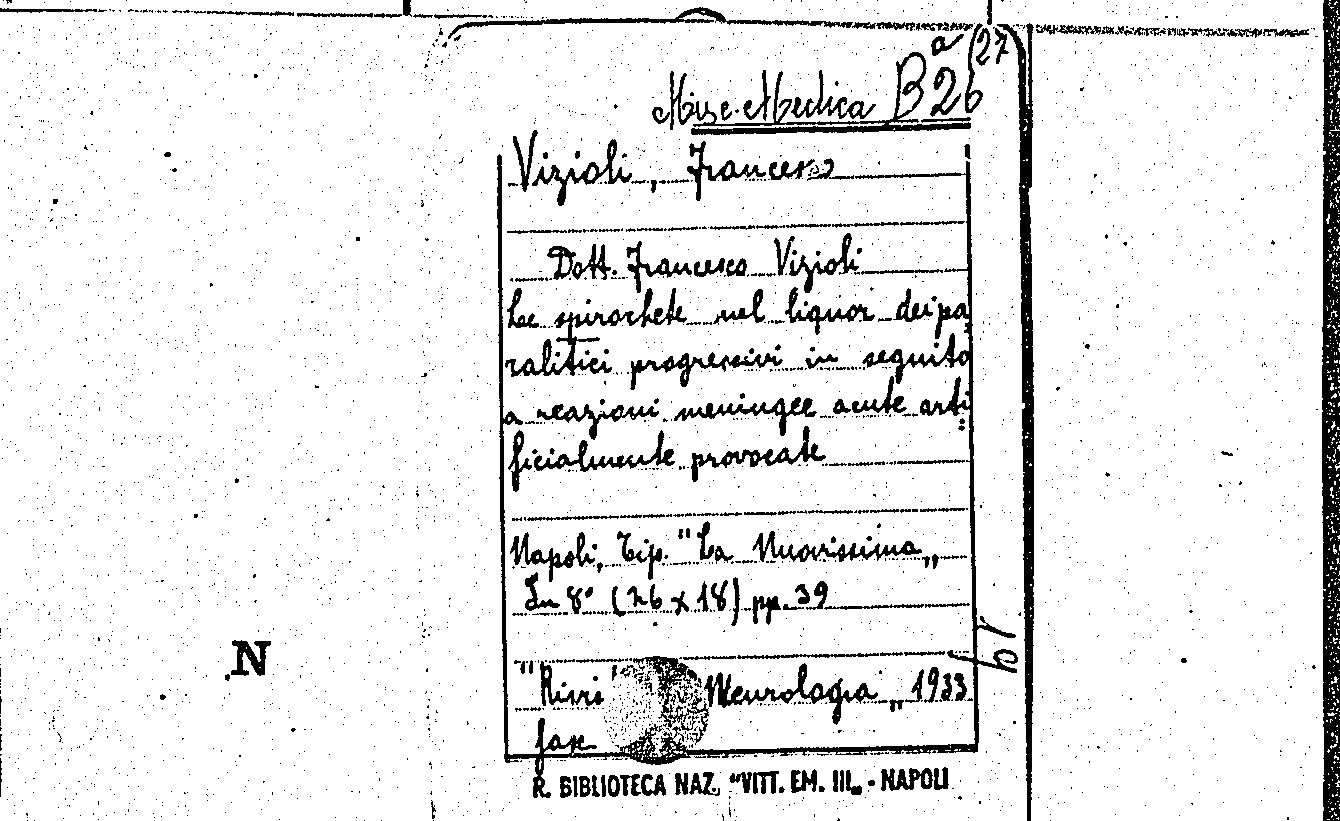 Misc. Medica B<sup>a</sup> 26 (27
Vizioli, Francesco
Dott. Francesco Vizioli
Le spirochete nel liquor dei pa
ralitici progressivi in seguito
a reazioni meningee acute arti
ficialmente provocate
Napoli, Tip. "La Nuovissima„
In 8° (26 x 18) pp. 39
"Rivi Neurologia„ 1933
fasc.
R. BIBLIOTECA NAZ. "VITT. EM. III„ - NAPOLI
N